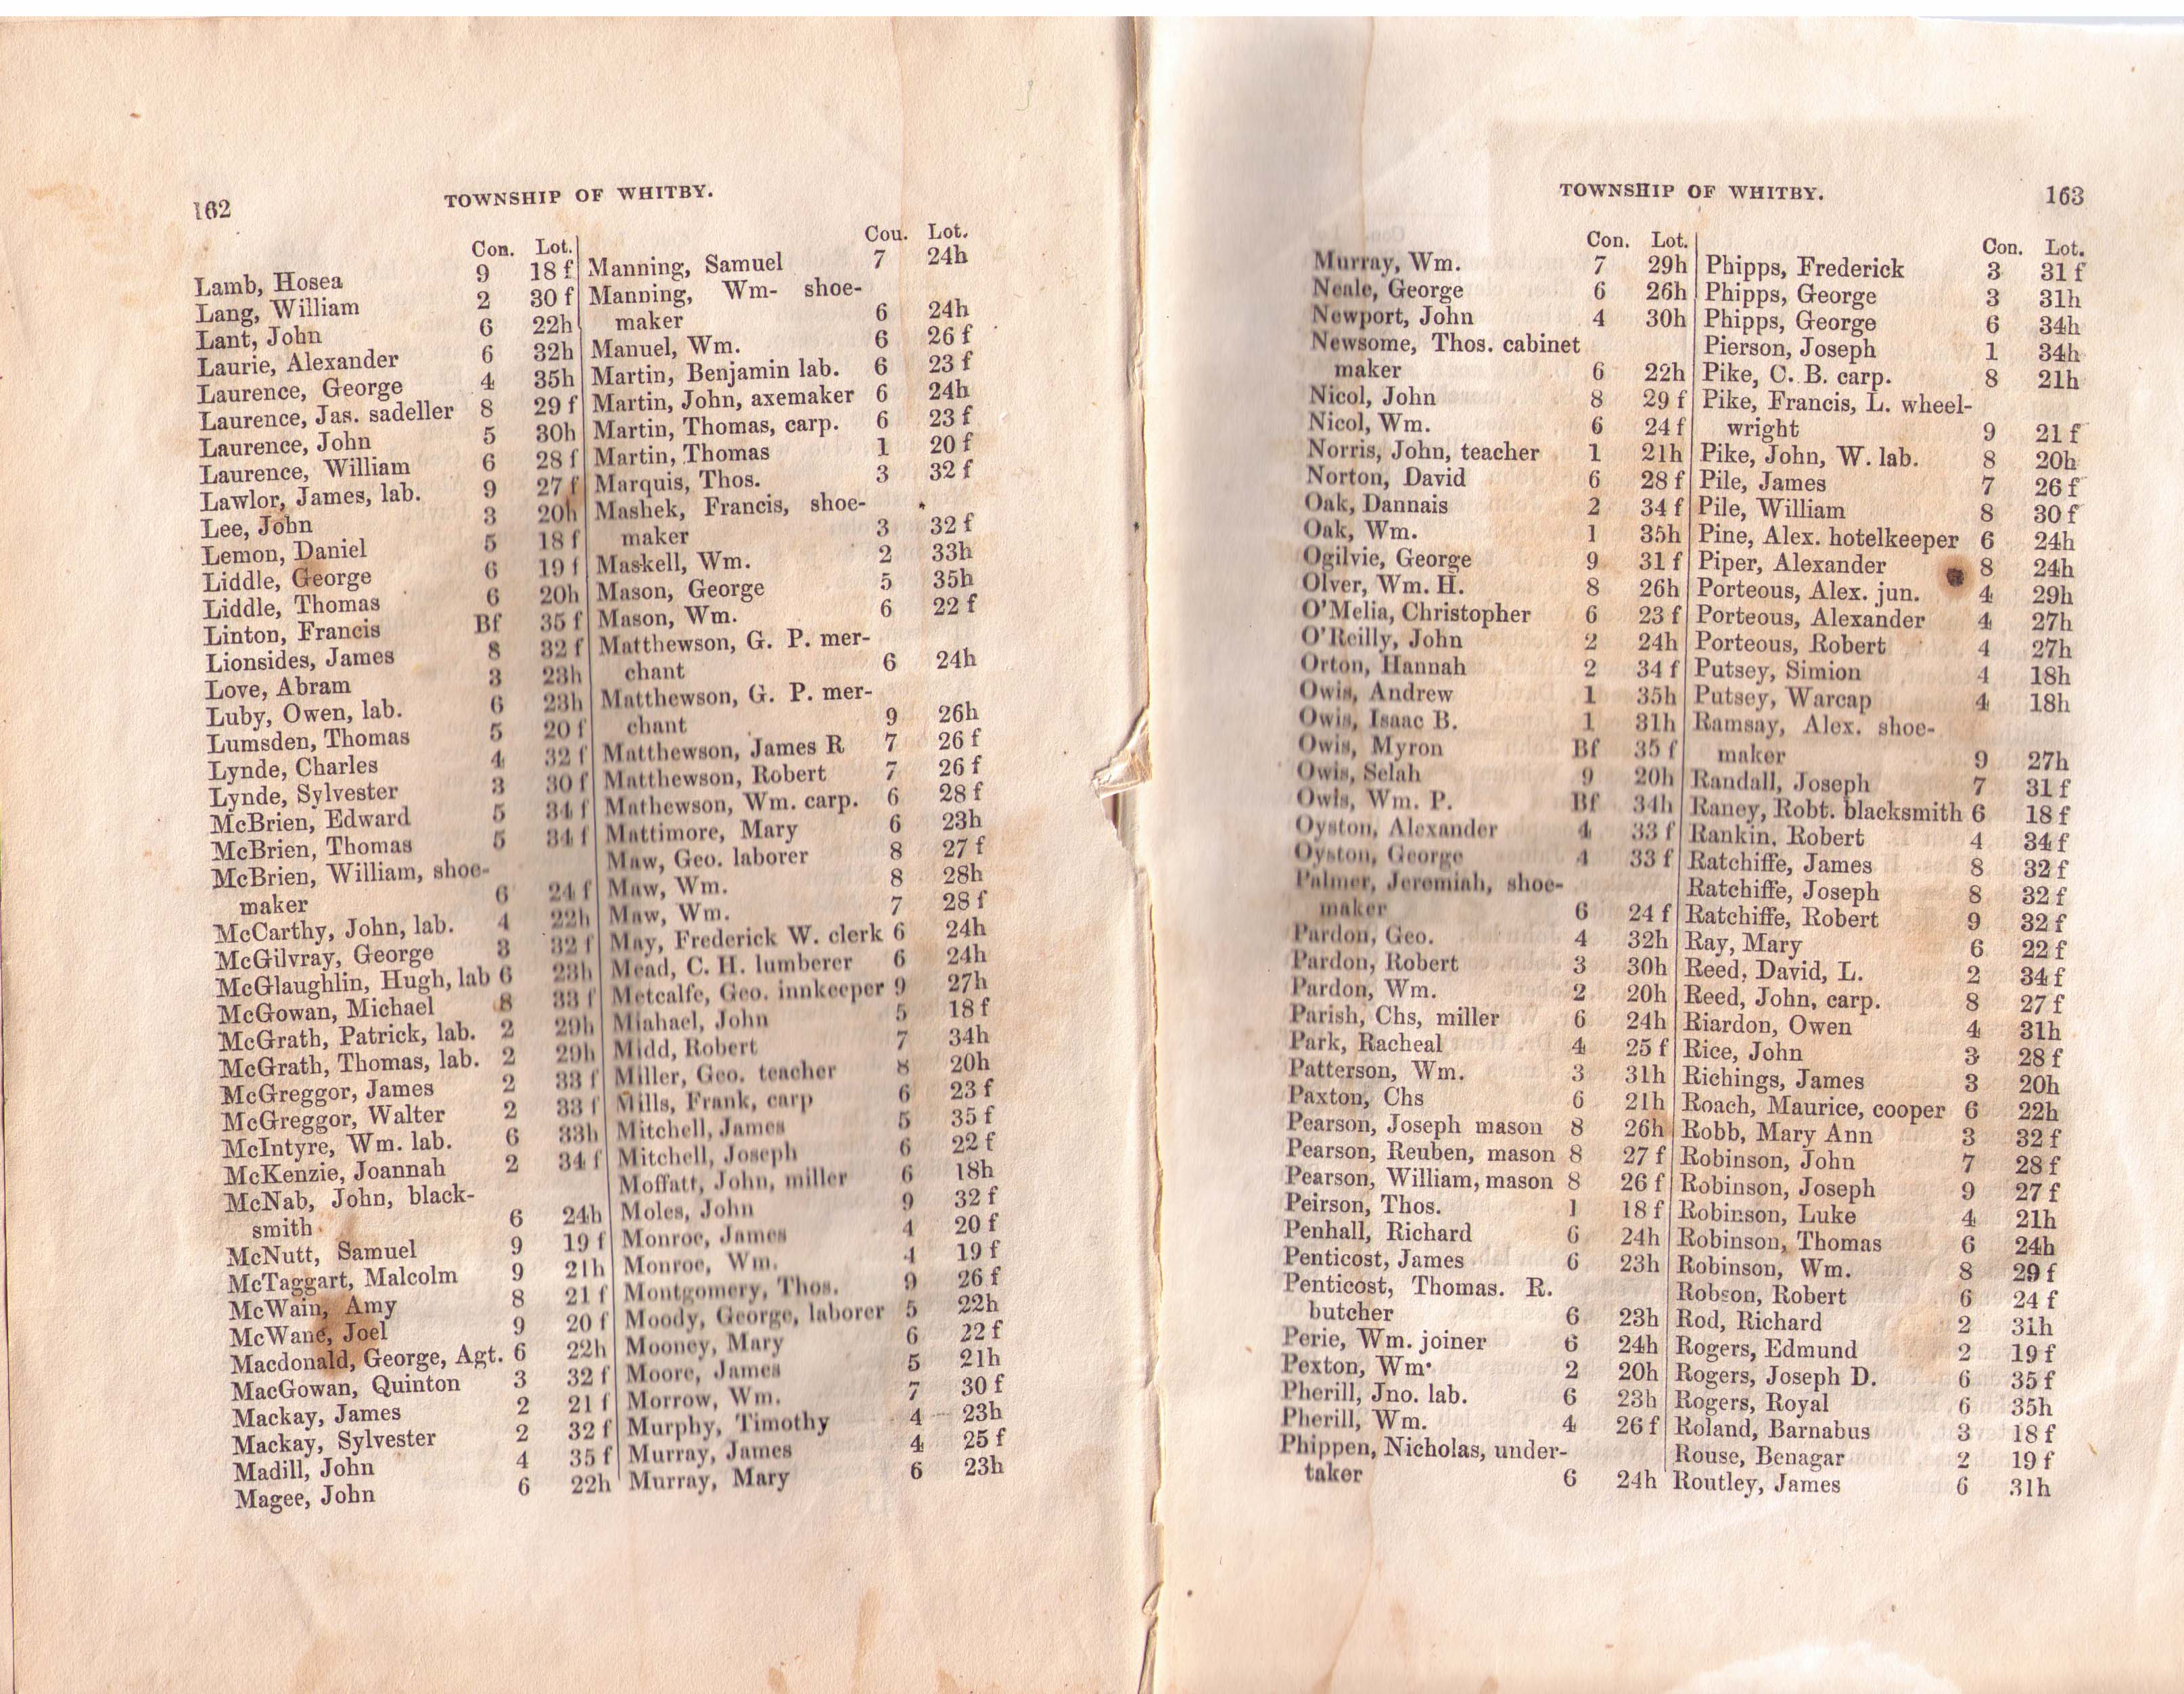 162
TOWNSHIP OF WHITBY.
Con. Lot.
Lamb, Hosea 9 18 f
Lang, William 2 30 f
Lant, John 6 22h
Laurie, Alexander 6 32h
Laurence, George 4 35h
Laurence, Jas. sadeller 8 29 f
Laurence, John 5 30h
Laurence, William 6 28 f
Lawlor, James, lab. 9 27 f
Lee, John 3 20h
Lemon, Daniel 5 18 f
Liddle, George 6 19 f
Liddle, Thomas 6 20h
Linton, Francis Bf 35 f
Lionsides, James 8 32 f
Love, Abram 3 23h
Luby, Owen, lab. 6 23h
Lumsden, Thomas 5 20 f
Lynde, Charles 4 32 f
Lynde, Sylvester 3 30 f
McBrien, Edward 5 34 f
McBrien, Thomas 5 34 f
McBrien, William, shoe-
maker 6 24 f
McCarthy, John, lab. 4 22h
McGilvray, George 3 32 f
McGlaughlin, Hugh, lab 6 23h
McGowan, Michael 8 33 f
McGrath, Patrick, lab. 2 29h
McGrath, Thomas, lab. 2 29h
McGreggor, James 2 33 f
McGreggor, Walter 2 33 f
McIntyre, Wm. lab. 6 33h
McKenzie, Joannah 2 34 f
McNab, John, black-
smith 6 24h
McNutt, Samuel 9 19 f
McTaggart, Malcolm 9 21h
McWain, Amy 8 21 f
McWane, Joel 9 20 f
Macdonald, George, Agt. 6 22h
MacGowan, Quinton 3 32 f
Mackay, James 2 21 f
Mackay, Sylvester 2 32 f
Madill, John 4 35 f
Magee, John 6 22h
Cou. Lot.
Manning, Samuel 7 24h
Manning, Wm- shoe-
maker 6 24h
Manuel, Wm. 6 26 f
Martin, Benjamin lab. 6 23 f
Martin, John, axemaker 6 24h
Martin, Thomas, carp. 6 23 f
Martin, Thomas 1 20 f
Marquis, Thos. 3 32 f
Mashek, Francis, shoe-
maker 3 32 f
Maskell, Wm. 2 33h
Mason, George 5 35h
Mason, Wm. 6 22 f
Matthewson, G. P. mer-
chant 6 24h
Matthewson, G. P. mer-
chant 9 26h
Matthewson, James R 7 26 f
Matthewson, Robert 7 26 f
Mathewson, Wm. carp. 6 28 f
Mattimore, Mary 6 23h
Maw, Geo. laborer 8 27 f
Maw, Wm. 8 28h
Maw, Wm. 7 28 f
May, Frederick W. clerk 6 24h
Mead, C. H. lumberer 6 24h
Metcalfe, Geo. innkeeper 9 27h
Miahael, John 5 18 f
Midd, Robert 7 34h
Miller, Geo. teacher 8 20h
Mills, Frank, carp 6 23 f
Mitchell, James 5 35 f
Mitchell, Joseph 6 22 f
Moffatt, John, miller 6 18h
Moles, John 9 32 f
Monroe, James 4 20 f
Monroe, Wm. 4 19 f
Montgomery, Thos. 9 26 f
Moody, George, laborer 5 22h
Mooney, Mary 6 22 f
Moore, James 5 21h
Morrow, Wm. 7 30 f
Murphy, Timothy 4 23h
Murray, James 4 25 f
Murray, Mary 6 23h
TOWNSHIP OF WHITBY.
163
Con. Lot.
Murray, Wm. 7 29h
Neale, George 6 26h
Newport, John 4 30h
Newsome, Thos. cabinet
maker 6 22h
Nicol, John 8 29 f
Nicol, Wm. 6 24 f
Norris, John, teacher 1 21h
Norton, David 6 28 f
Oak, Dannais 2 34 f
Oak, Wm. 1 35h
Ogilvie, George 9 31 f
Olver, Wm. H. 8 26h
O'Melia, Christopher 6 23 f
O'Reilly, John 2 24h
Orton, Hannah 2 34 f
Owis, Andrew 1 35h
Owis, Isaac B. 1 31h
Owis, Myron Bf 35 f
Owis, Selah 9 20h
Owis, Wm. P. Bf 34h
Oyston, Alexander 4 33 f
Oyston, George 4 33 f
Palmer, Jeremiah, shoe-
maker 6 24 f
Pardon, Geo. 4 32h
Pardon, Robert 3 30h
Pardon, Wm. 2 20h
Parish, Chs, miller 6 24h
Park, Racheal 4 25 f
Patterson, Wm. 3 31h
Paxton, Chs 6 21h
Pearson, Joseph mason 8 26h
Pearson, Reuben, mason 8 27 f
Pearson, William, mason 8 26 f
Peirson, Thos. 1 18 f
Penhall, Richard 6 24h
Penticost, James 6 23h
Penticost, Thomas. R.
butcher 6 23h
Perie, Wm. joiner 6 24h
Pexton, Wm· 2 20h
Pherill, Jno. lab. 6 23h
Pherill, Wm. 4 26 f
Phippen, Nicholas, under-
taker 6 24h
Con. Lot.
Phipps, Frederick 3 31 f
Phipps, George 3 31h
Phipps, George 6 34h
Pierson, Joseph 1 34h
Pike, C. B. carp. 8 21h
Pike, Francis, L. wheel-
wright 9 21 f
Pike, John, W. lab. 8 20h
Pile, James 7 26 f
Pile, William 8 30 f
Pine, Alex. hotelkeeper 6 24h
Piper, Alexander 8 24h
Porteous, Alex. jun. 4 29h
Porteous, Alexander 4 27h
Porteous, Robert 4 27h
Putsey, Simion 4 18h
Putsey, Warcap 4 18h
Ramsay, Alex. shoe-
maker 9 27h
Randall, Joseph 7 31 f
Raney, Robt. blacksmith 6 18 f
Rankin, Robert 4 34 f
Ratchiffe, James 8 32 f
Ratchiffe, Joseph 8 32 f
Ratchiffe, Robert 9 32 f
Ray, Mary 6 22 f
Reed, David, L. 2 34 f
Reed, John, carp. 8 27 f
Riardon, Owen 4 31h
Rice, John 3 28 f
Richings, James 3 20h
Roach, Maurice, cooper 6 22h
Robb, Mary Ann 3 32 f
Robinson, John 7 28 f
Robinson, Joseph 9 27 f
Robinson, Luke 4 21h
Robinson, Thomas 6 24h
Robinson, Wm. 8 29 f
Robson, Robert 6 24 f
Rod, Richard 2 31h
Rogers, Edmund 2 19 f
Rogers, Joseph D. 6 35 f
Rogers, Royal 6 35h
Roland, Barnabus 3 18 f
Rouse, Benagar 2 19 f
Routley, James 6 31h